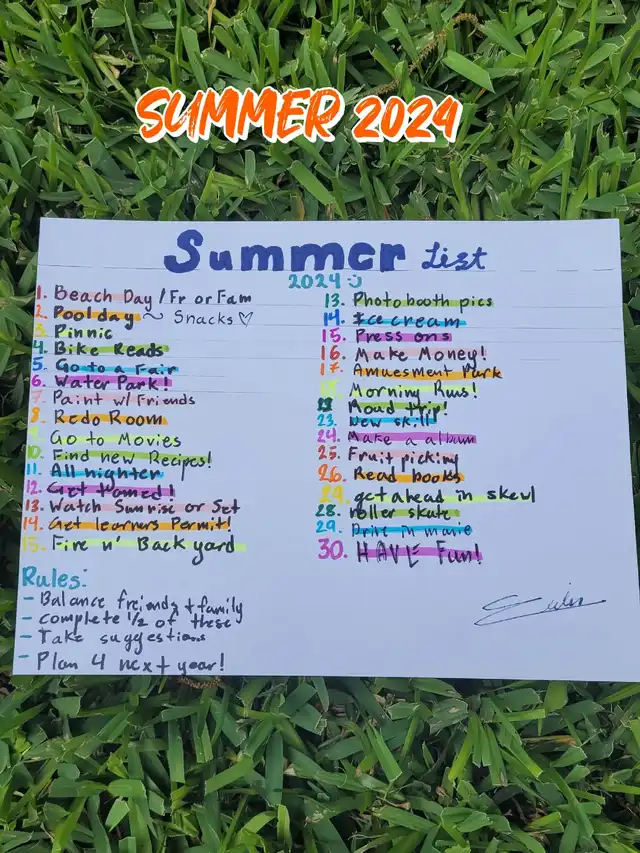 SUMMER 2024
Summer List
2024
1. Beach Day / Fr or Fam
2. Pool day ~ Snacks ♡
3. Pinnic
4. Bike Reads
5. Go to a Fair
6. Water Park!
7. Paint w/ Friends
8. Redo Room
9. Go to Movies
10. Find new Recipes!
11. All nighter
12. Get Tanned!
13. Watch Sunrise or Set
14. Get learners Permit!
15. Fire n' Back yard
13. Photo booth pics
14. Ice cream
15. Press ons
16. Make Money!
17. Amuesment Park
18. Morning Runs!
22. Road trip!
23. New skill
24. Make a album
25. Fruit picking
26. Read books
29. get ahead in skewl
28. roller skate
29. Drive in movie
30. HAVE Fun!
Rules:
- Balance friends + family
- complete 1/2 of these
- Take suggestions
- Plan 4 next year!